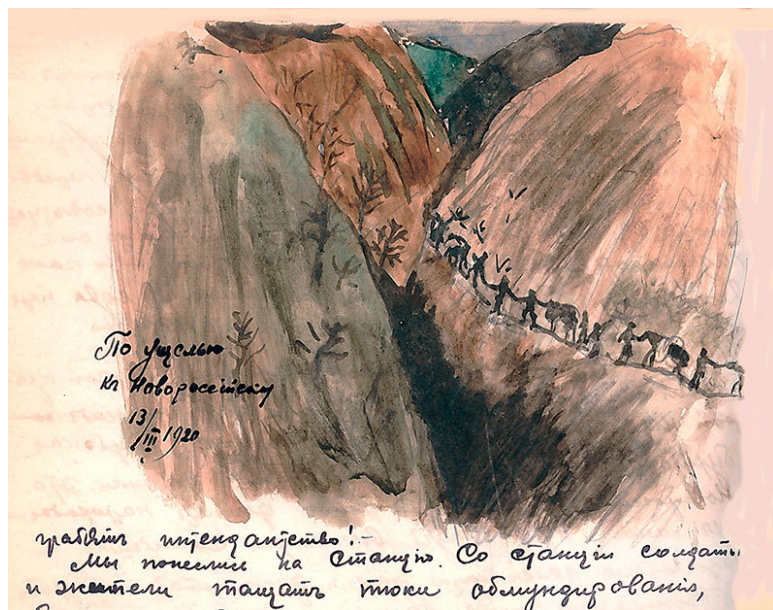 По ущелью
къ Новороссiйску
13/III 1920
грабятъ интендантство!-
Мы понеслись на станцiю. Со станцiи солдаты
и жители тащатъ тюки обмундированiя,